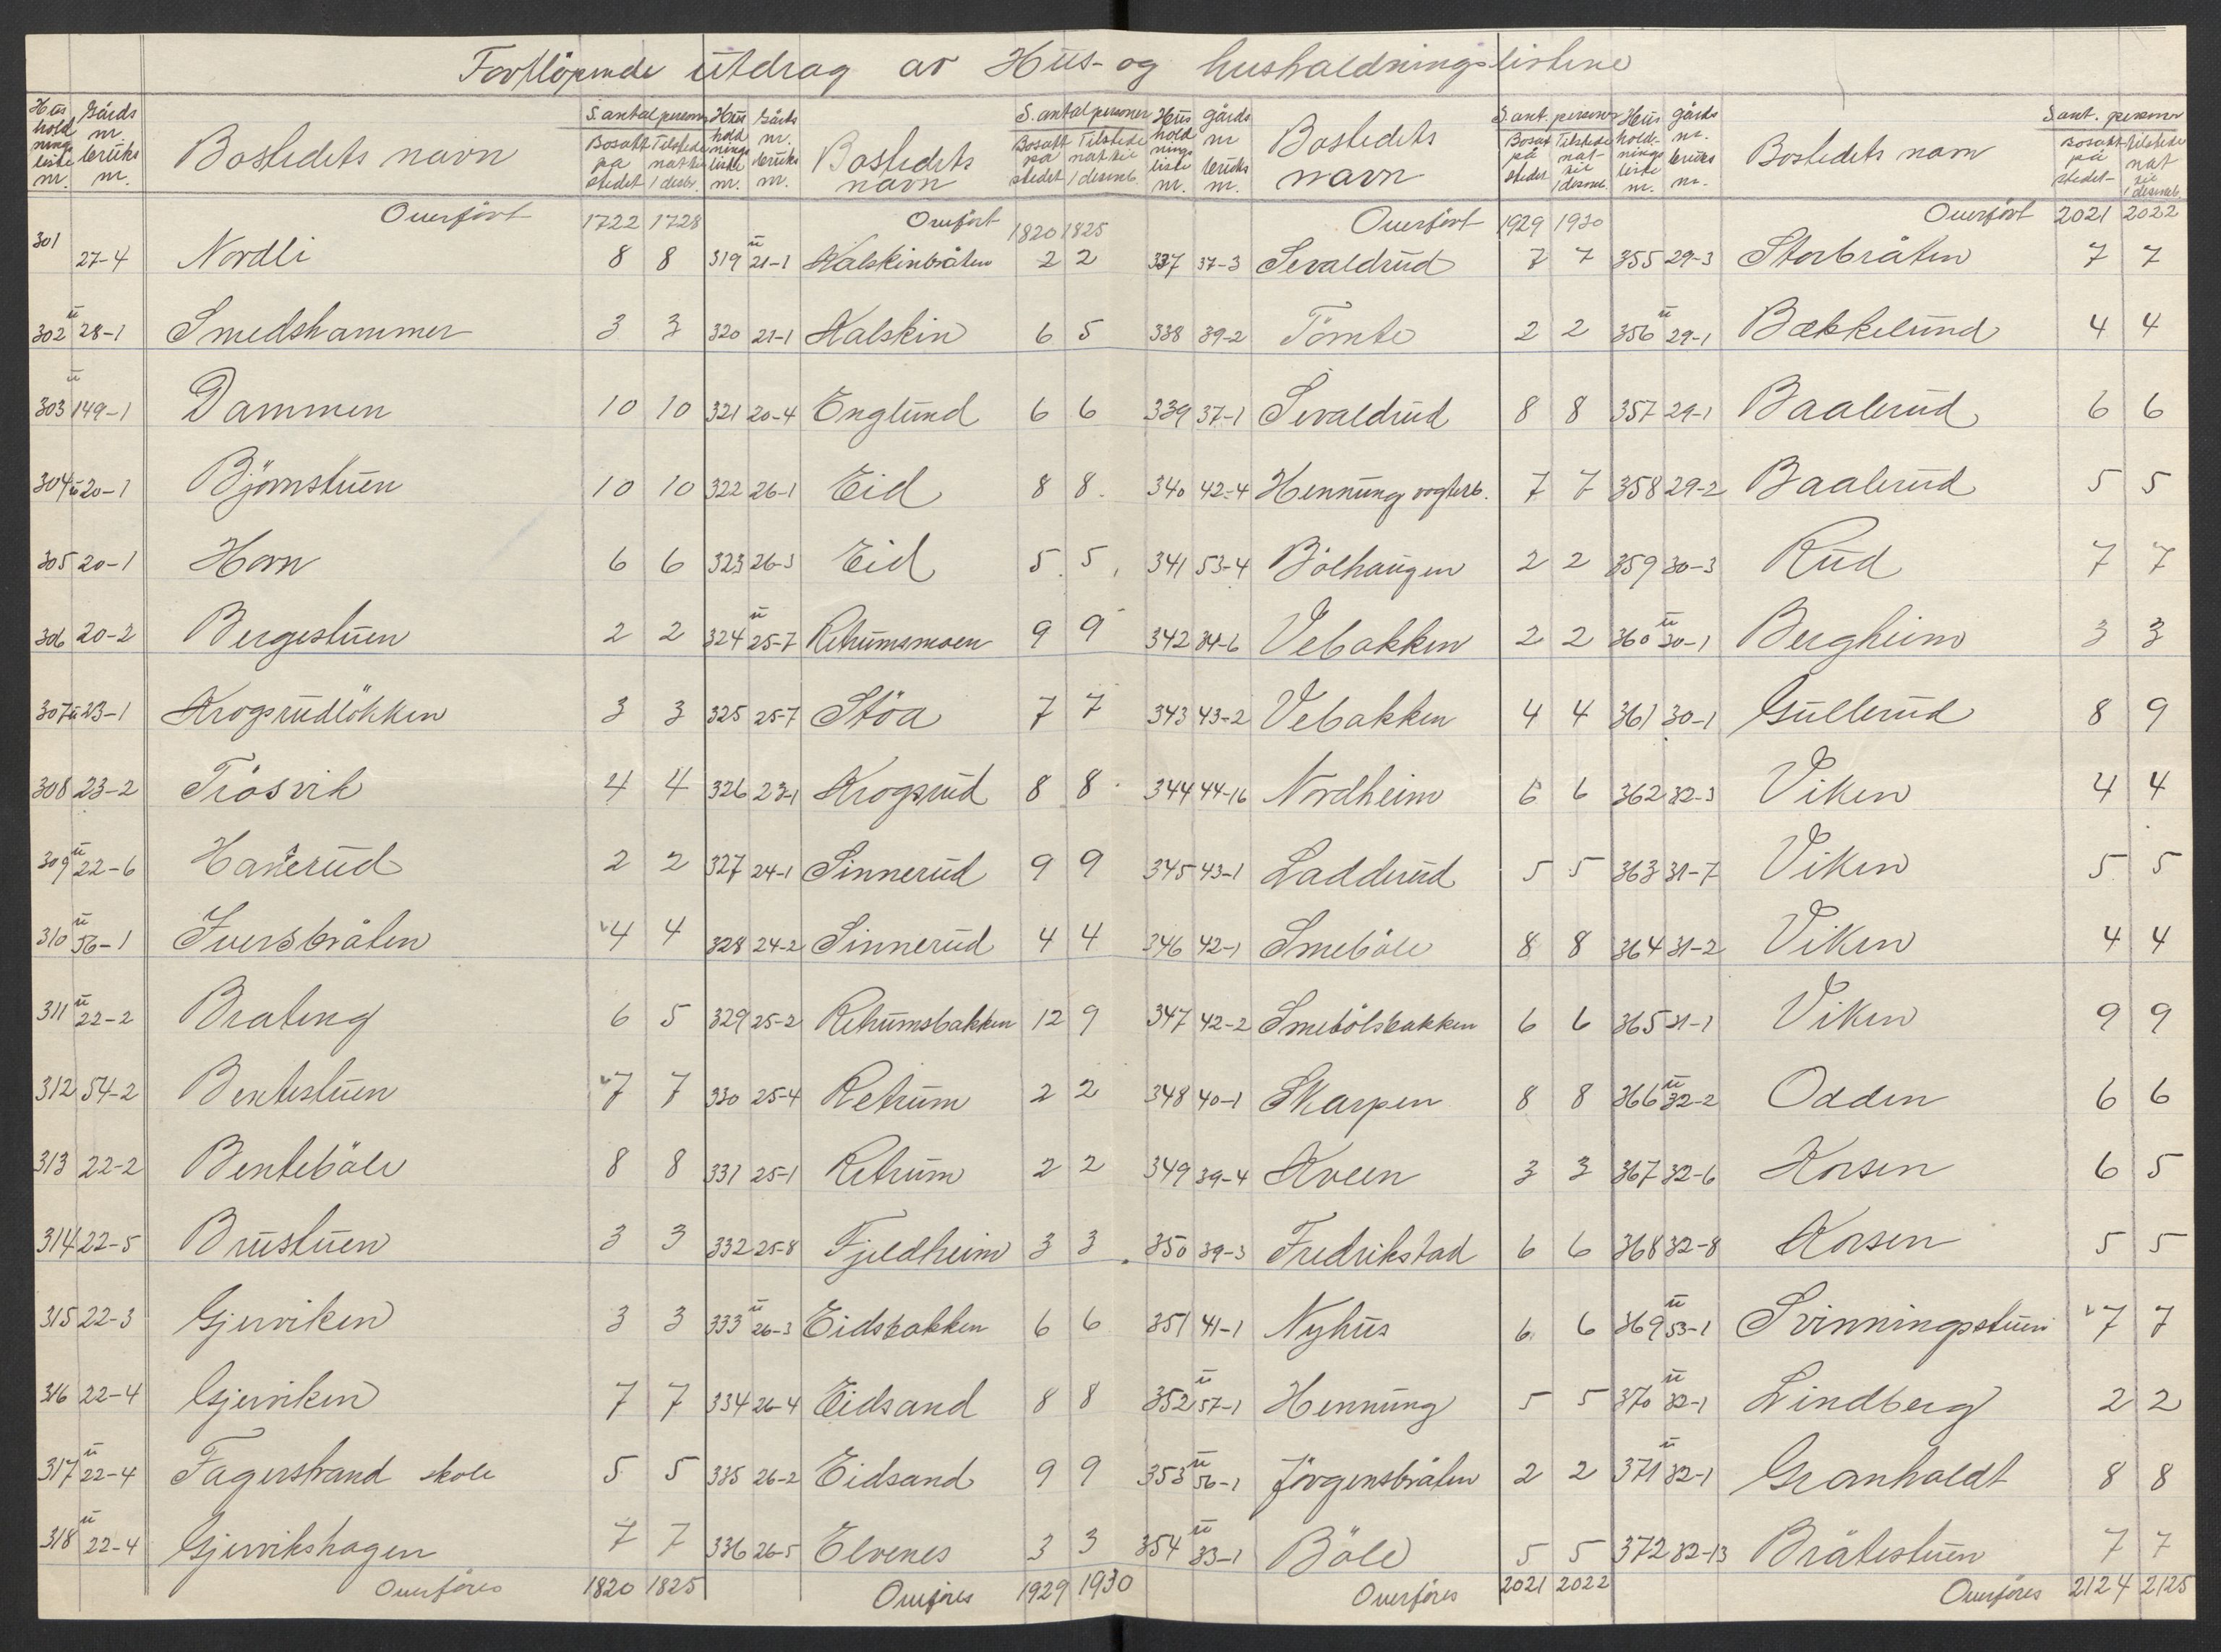 Fortlöpende utdrag av Hus- og husholdningslistene
Hus hold nings liste nr. Gårds nr. bruks nr. Bostedets navn S. antal personer Bosatt på stedet Tilstede nat til 1 desbr.
Overfört 1722 1728
301 27-4 Nordli 8 8
302 u 28-1 Smedshammer 3 3
303 u 149-1 Dammen 10 10
304 u 20-1 Björnstuen 10 10
305 20-1 Horn 6 6
306 20-2 Bergestuen 2 2
307 u 23-1 Krogsrudlökken 3 3
308 23-2 Trösvik 4 4
309 u 22-6 Hanerud 2 2
310 u 56-1 Iversbråten 4 4
311 u 22-2 Brateng 6 5
312 54-2 Bentestuen 7 7
313 22-2 Benteböle 8 8
314 22-5 Brustuen 3 3
315 22-3 Gjerviken 3 3
316 22-4 Gjerviken 7 7
317 u 22-4 Fagerstrand skole 5 5
318 u 22-4 Gjervikshagen 7 7
Overföres 1820 1825
Hus hold nings liste nr. Gårds nr. bruks nr. Bostedets navn S. antal personer Bosatt på stedet Tilstede nat til 1 desemb.
Overfört 1820 1825
319 u 21-1 Kalskinbråten 2 2
320 21-1 Kalskin 6 5
321 20-4 Englund 6 6
322 26-1 Eid 8 8
323 26-3 Eid 5 5
324 u 25-7 Retrumsmoen 9 9
325 25-7 Stöa 7 7
326 23-1 Krogsrud 8 8
327 24-1 Sinnerud 9 9
328 24-2 Sinnerud 4 4
329 25-2 Retrumsbakken 12 9
330 25-4 Retrum 2 2
331 25-1 Retrum 2 2
332 25-8 Fjeldheim 3 3
333 u 26-3 Eidsbakken 6 6
334 26-4 Eidsand 8 8
335 26-2 Eidsand 9 9
336 26-5 Elvenes 3 3
Overföres 1929 1930
Hus hold nings liste nr. gårds nr bruks nr. Bostedets navn S. ant. personer Bosat på stedet Tilstede nat- til 1 desemb.
Overfört 1929 1930
337 37-3 Sevaldrud 7 7
338 39-2 Tömte 2 2
339 37-1 Sevaldrud 8 8
340 42-4 Hennung vogterb. 7 7
341 53-4 Bölhaugen 2 2
342 34-6 Vebakken 2 2
343 43-2 Vebakken 4 4
344 44-16 Nordheim 6 6
345 43-1 Ladderud 5 5
346 42-1 Smeböle 8 8
347 42-2 Smebölsbakken 6 6
348 40-1 Skarpen 8 8
349 39-4 Kveen 3 3
350 39-3 Fredrikstad 6 6
351 41-1 Nyhus 6 6
352 u 57-1 Hennung 5 5
353 u 56-1 Jörgensbråten 2 2
354 u 33-1 Böle 5 5
Overföres 2021 2022
Hus hold- nings liste nr. gårds nr. bruks nr. Bostedets navn S. ant. personer Bosatt på stedet tilstede nat til 1 desemb.
Overfört 2021 2022
355 29-3 Storbråten 7 7
356 u 29-1 Bækkelund 4 4
357 29-1 Baalerud 6 6
358 29-2 Baalerud 5 5
359 30-3 Rud 7 7
360 u 30-1 Bergheim 3 3
361 30-1 Gullerud 8 9
362 32-3 Viken 4 4
363 31-7 Viken 5 5
364 31-2 Viken 4 4
365 31-1 Viken 9 9
366 u 32-2 Odden 6 6
367 32-6 Korsen 6 5
368 32-8 Korsen 5 5
369 u 53-1 Svinningsstuen 7 7
370 u 32-1 Lindberg 2 2
371 u 32-1 Granholdt 8 8
372 32-13 Bråtestuen 7 7
Overföres 2124 2125